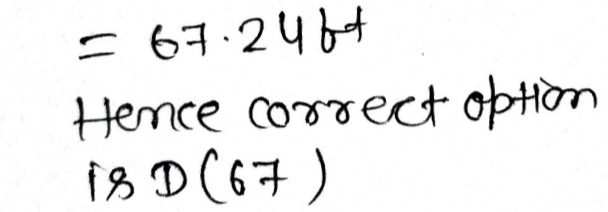 = 67.24 ft
Hence correct option
is D (67)